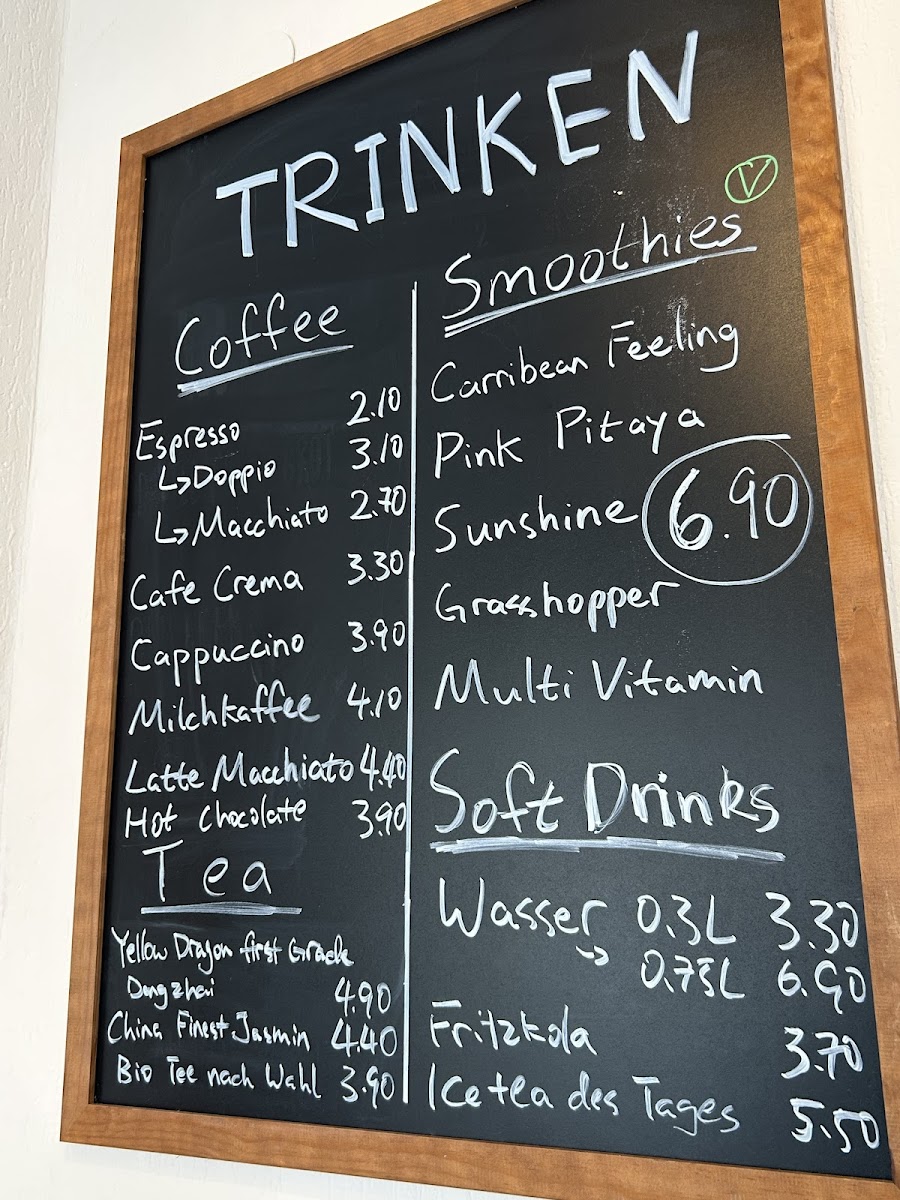 TRINKEN
Coffee
Espresso 2.10
↳Doppio 3.10
↳Macchiato 2.70
Cafe Crema 3.30
Cappuccino 3.90
Milchkaffee 4.10
Latte Macchiato 4.40
Hot Chocolate 3.90
Tea
Yellow Dragon first Grade
Dongzhai 4.90
China Finest Jasmin 4.40
Bio Tee nach Wahl 3.90
Smoothies V
Carribean Feeling
Pink Pitaya
Sunshine 6.90
Grasshopper
Multi Vitamin
Soft Drinks
Wasser 0.3L 3.30
→ 0.75L 6.90
Fritzkola 3.70
Icetea des Tages 5.50